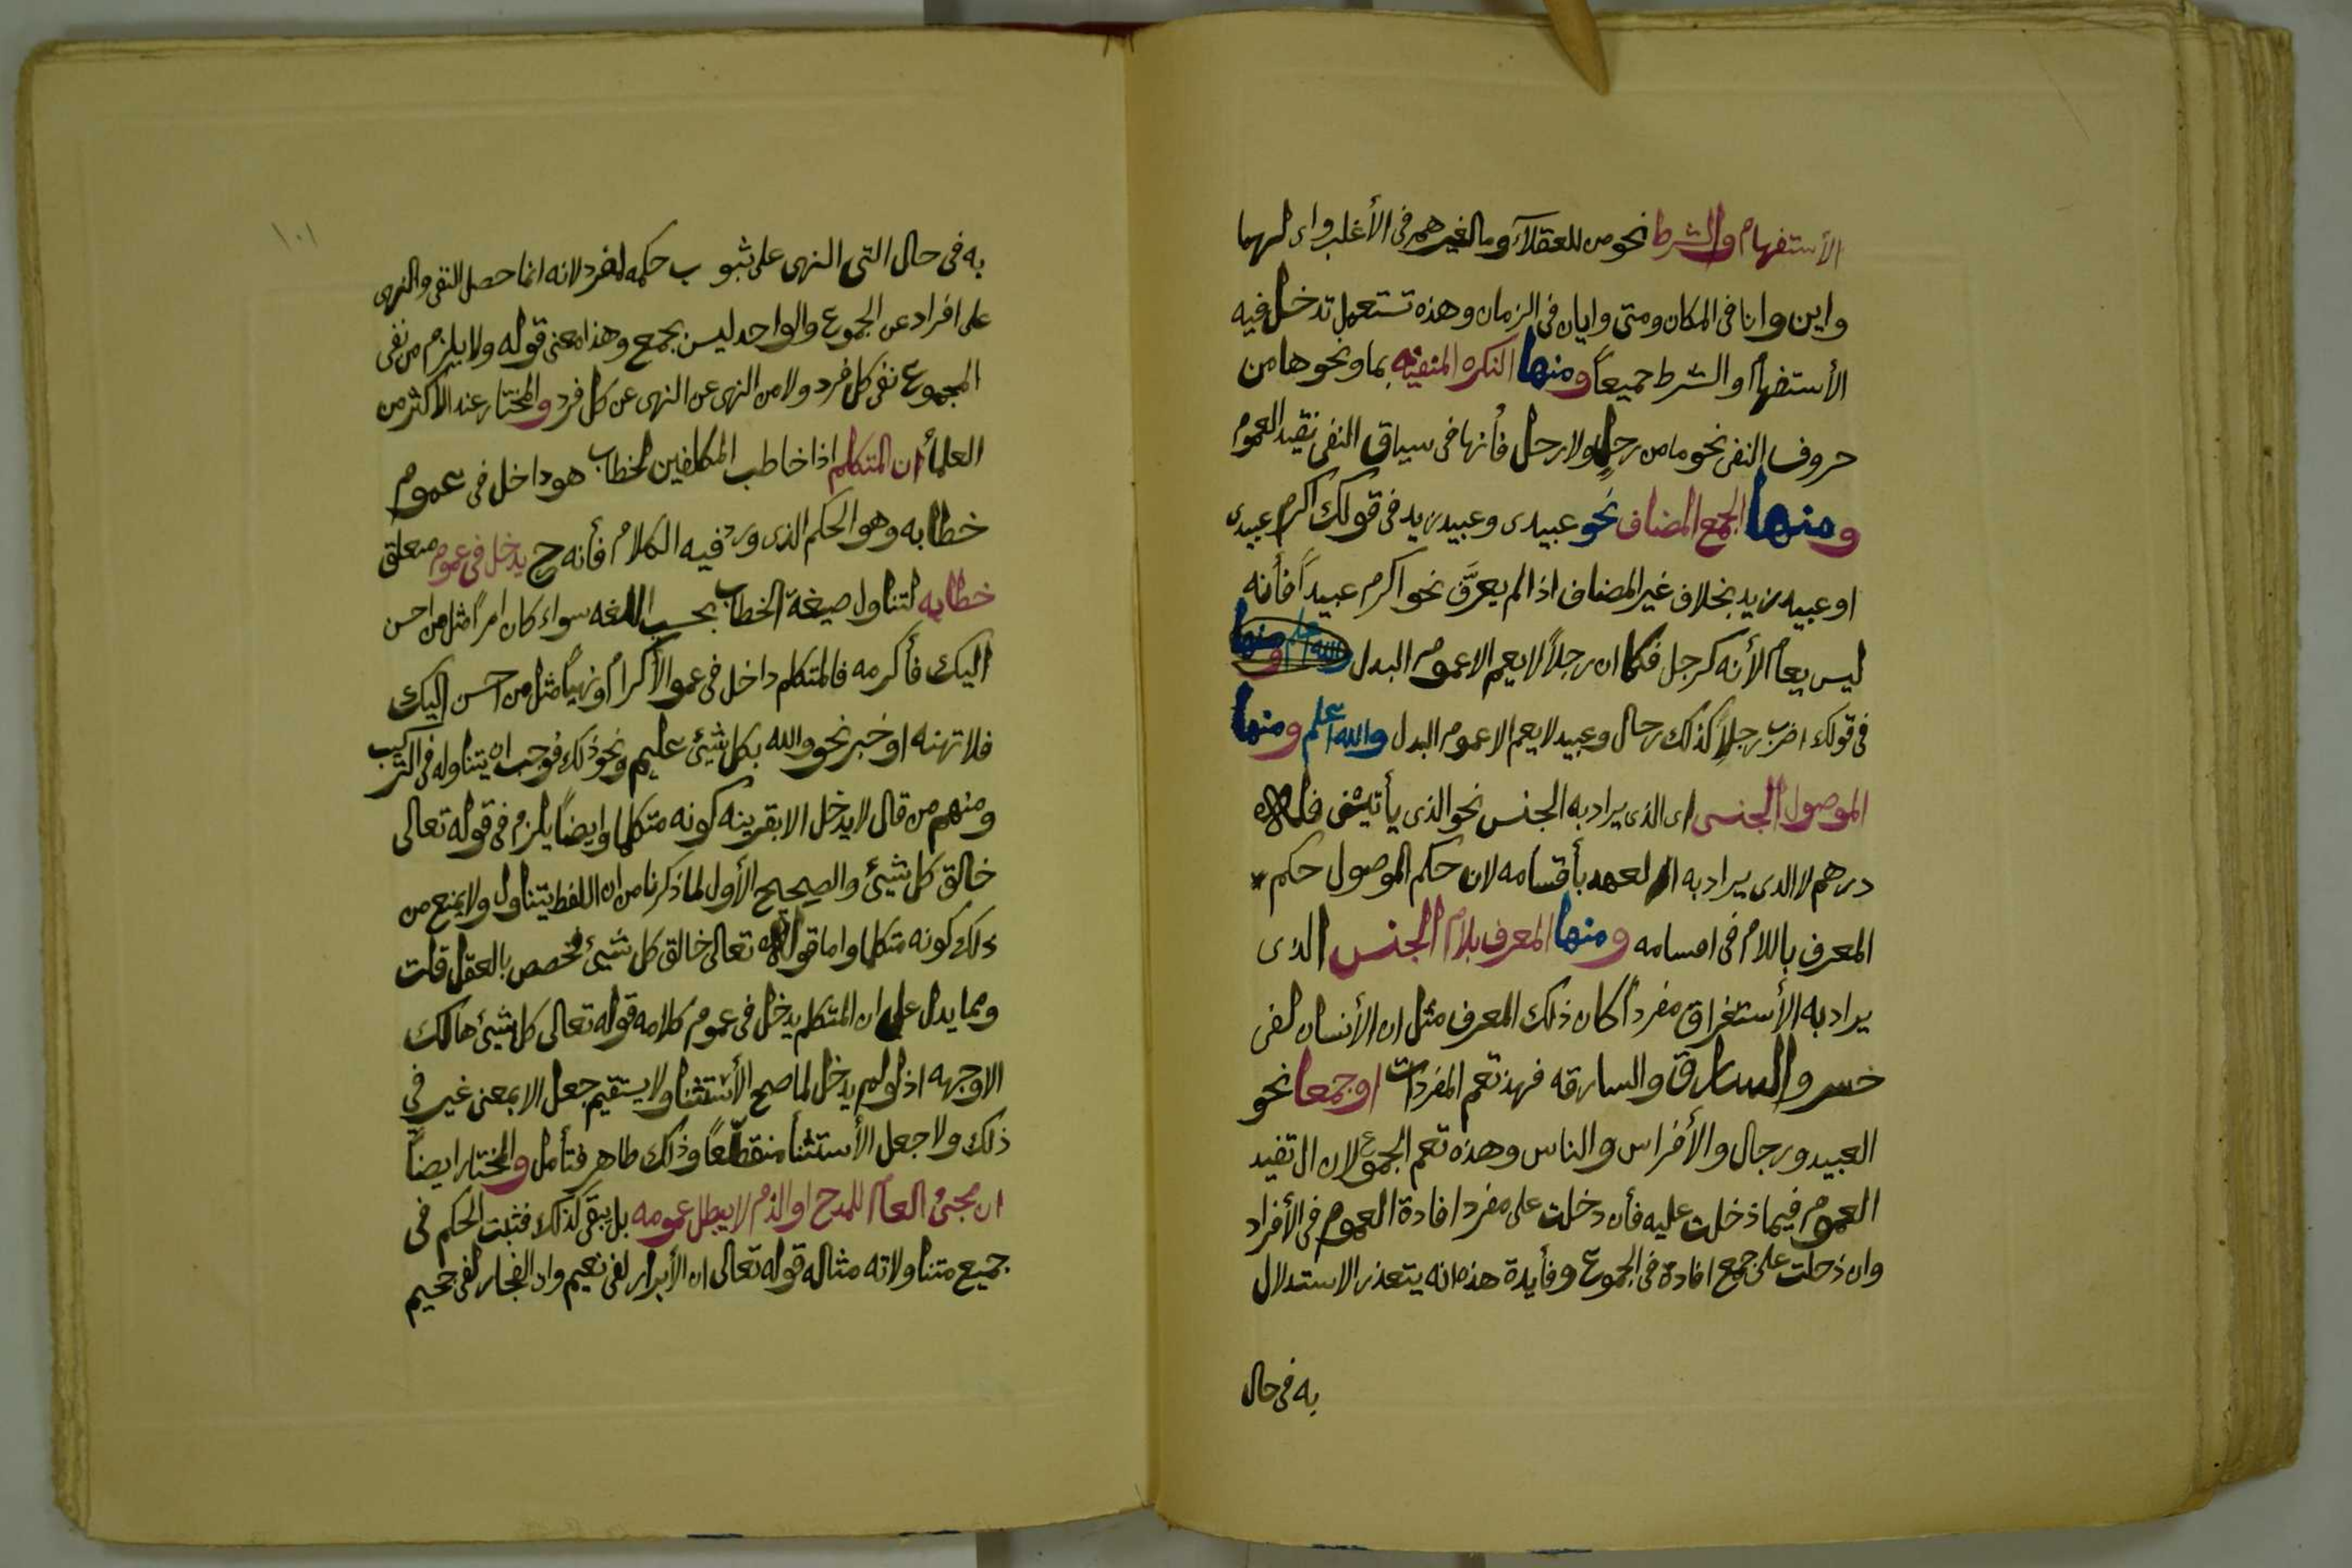 الأستفهام والشرط نحو من للعقلآء وما لغيرهم فى الأغلب واى لهما
واين وانا فى المكان ومتى وايان فى الزمان وهذه تستعمل تدخل فيه
الأستفهام او الشرط جميعاً ومنها النكره المنفيه بما ونحوها من
حروف النفى نحو ما من رجلٍ ولا رجل فأنها فى سياق النفى تفيد العموم
ومنها الجمع المضاف نحو عبيدى وعبيد زيد فى قولك اكرم عبيدى
او عبيد زيد بخلاف غير المضاف اذا لم يعرَّف نحو اكرم عبيداً فأنه
ليس بعام لأنه كرجل فكما ان رجلاً لا يعم الا عموم البدل والله اعلم ومنها
فى قولك اضرب رجلاً كذلك رجال وعبيد لا يعم الا عموم البدل والله اعلم ومنها
الموصول الجنسى اى الذى يراد به الجنس نحو الذى يأتينى فله
درهم لا الدى يراد به العهد بأقسامه لان حكم الموصول حكم
المعرف باللام فى اقسامه ومنها المعرف بلام الجنس الذى
يراد به الأستغراق مفرداً كان ذلك المعرف مثل ان الأنسان لفى
خسر والسارق والسارقه فهذ تعم المفردات او جمعا نحو
العبيد ورجال والأفراس والناس وهذه تعم الجموع لان ال تفيد
العموم فيما دخلت عليه فأن دخلت على مفرد افادة العموم فى الأفراد
وان دخلت على جمع افادة فى الجموع وفأيدة هذه انه يتعذر الاستدلال
به فى حال
١٠١
به فى حال التى النهى على ثبو ب حكمه لمفرد لانه انما حصل النفى والنهى
على افراد عن الجموع والواحد ليس بجمع وهذا معنى قوله ولا يلزم من نفى
المجموع نفى كل فرد ولا من النهى عن النهى عن كل فرد والمختار عند الاكثر من
العلمأ ان المتكلم اذا خاطب المكلفين لخطاب هو داخل فى عموم
خطابه وهو الحكم الذى ورد فيه الكلام فأنه ح يدخل فى عموم متعلق
خطابه لتناول صيغة الخطاب بحسب اللغه سواء كان امراً مثل من احسن
اليك فأكرمه فالمتكلم داخل فى عمو الأكرام او نهياً مثل من احسن اليك
فلا تهنه او خبر نحو والله بكل شيئ عليم ونحو ذلك فوجب ان يتناوله فى التركيب
ومنهم من قال لا يدخل الا بقرينه كونه متكلما وايضاً يلزم فى قوله تعالى
خالق كل شيئ والصحيح الأول لما ذكرنا من ان اللفظ يتناول ولا يمنع من
ذلك كونه متكلما واما قوله تعالى خالق كل شيئ فمخصص بالعقل قلت
ومما يدل على ان المتكلم يدخل فى عموم كلامه قوله تعالى كل شيئ هالك
الا وجهه اذ لو لم يدخل لما صح الأستثنا ولا يستقيم جعل الا بمعنى غير فى
ذلك ولا جعل الأستثنأ منقطعاً وذلك ظاهر فتأمل والمختار ايضاً
ان مجئ العام للمدح او الذم لا يبطل عمومه بل يبقى كذلك فثبت الحكم فى
جميع متناولاته مثاله قوله تعالى ان الأبرار لفى نعيم وان الفجار لفى جحيم